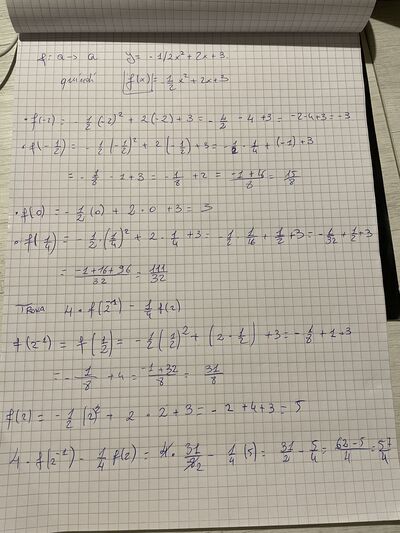 f: Q → Q    y = -1/2x² + 2x + 3.
quindi    f(x) = -1/2 x² + 2x + 3
• f(-2) = -1/2 (-2)² + 2(-2) + 3 = -4/2 - 4 + 3 = -2 - 4 + 3 = -3
• f(-1/2) = -1/2 (-1/2)² + 2(-1/2) + 3 = -1/2 · 1/4 + (-1) + 3
= -1/8 - 1 + 3 = -1/8 + 2 = (-1 + 16)/8 = 15/8
• f(0) = -1/2 (0) + 2 · 0 + 3 = 3
• f(1/4) = -1/2 · (1/4)² + 2 · 1/4 + 3 = -1/2 · 1/16 + 1/2 + 3 = -1/32 + 1/2 + 3
= (-1 + 16 + 96)/32 = 111/32
TROVA    4 · f(2⁻¹) - 1/4 f(2)
f(2⁻¹) = f(1/2) = -1/2 (1/2)² + (2 · 1/2) + 3 = -1/8 + 1 + 3
= -1/8 + 4 = (-1 + 32)/8 = 31/8
f(2) = -1/2 (2)² + 2 · 2 + 3 = -2 + 4 + 3 = 5
4 · f(2⁻¹) - 1/4 f(2) = 4 · 31/8 2 - 1/4 (5) = 31/2 - 5/4 = (62 - 5)/4 = 57/4